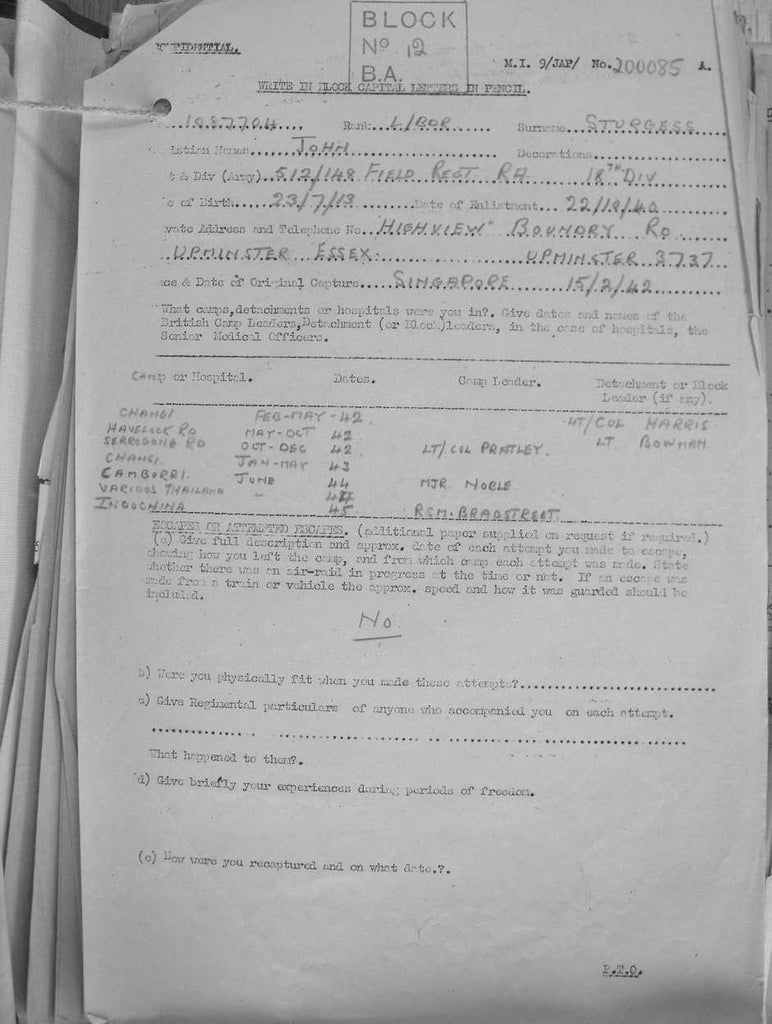 BLOCK
No 12
B.A.
CONFIDENTIAL.
M.I. 9/JAP/ No. 200085 A.
WRITE IN BLOCK CAPITAL LETTERS IN PENCIL.
...1087704.... Rank...L/BDR...... Surname...STURGESS....
istian Names......JOHN.......................... Decorations...................
t & Div (Army)..512/148 FIELD REGT RA 18TH DIV
e of Birth....23/7/13.........Date of Enlistment...22/10/40
vate Address and Telephone No. "HIGHVIEW" BOUNDRY RD
..UPMINSTER ESSEX............... UPMINSTER 3737
ce & Date of Original Capture....SINGAPORE....15/2/42....
What camps,detachments or hospitals were you in?. Give dates and names of the
British Camp Leaders,Detachment (or Block)leaders, in the case of hospitals, the
Senior Medical Officers.
Camp or Hospital. Dates. Camp Leader. Detachment or Block
Leader (if any).
CHANGI FEB-MAY-42. LT/COL HARRIS
HAVELOCK RD MAY-OCT 42 LT. BOWMAN
SERROGONG RD OCT-DEC 42. LT/COL PRATLEY.
CHANGI. JAN-MAY 43
CAMBURRI. JUNE 44 MJR. NOBLE
VARIOUS THAILAND " 44
INDOCHINA 45 RSM. BRADSTREET
ESCAPES OR ATTEMPTED ESCAPES. (additional paper supplied on request if required.)
(a) Give full description and approx. date of each attempt you made to escape,
showing how you left the camp, and from which camp each attempt was made. State
whether there was an air-raid in progress at the time or not. If an escape was
made from a train or vehicle the approx. speed and how it was guarded should be
included.
No.
b) Were you physically fit when you made these attempts?..............................
c) Give Regimental particulars of anyone who accompanied you on each attempt.
What happened to them?.
d) Give briefly your experiences during periods of freedom.
(e) How were you recaptured and on what date.?.
P.T.O.